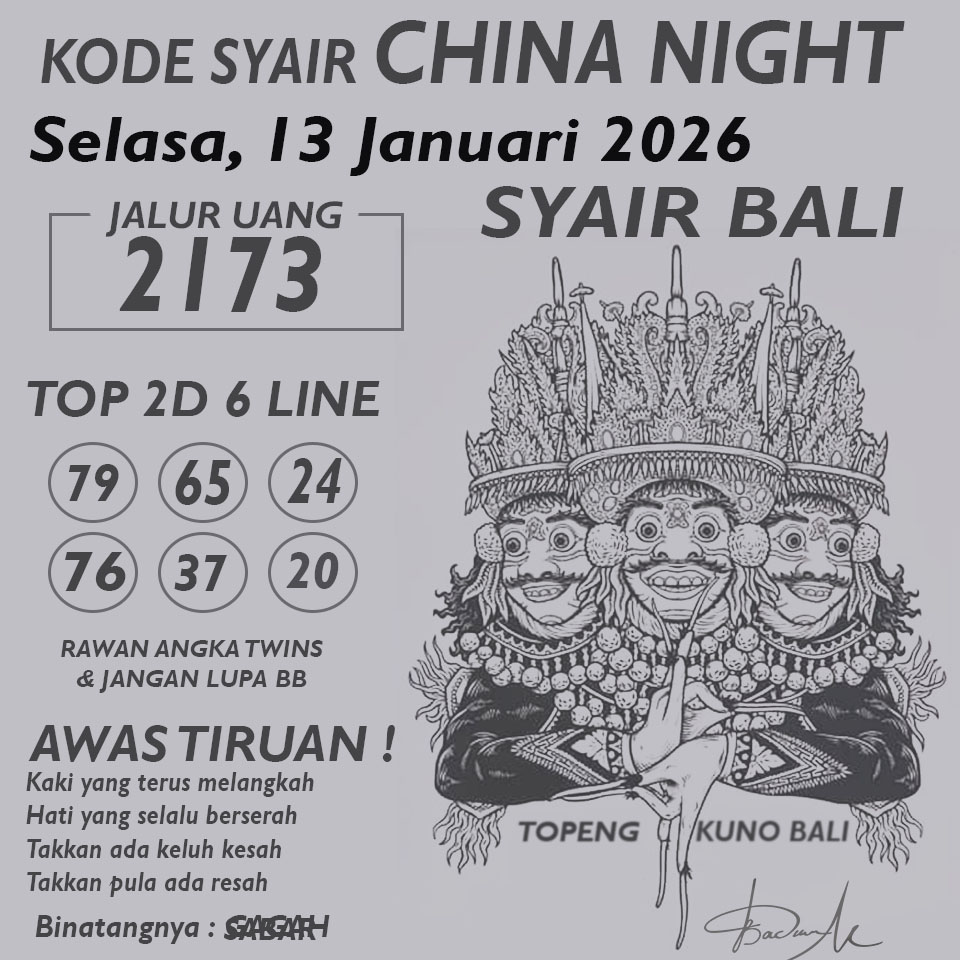 KODE SYAIR CHINA NIGHT
Selasa, 13 Januari 2026
SYAIR BALI
JALUR UANG
2173
TOP 2D 6 LINE
79 65 24
76 37 20
RAWAN ANGKA TWINS
& JANGAN LUPA BB
AWAS TIRUAN !
Kaki yang terus melangkah
Hati yang selalu berserah
Takkan ada keluh kesah
Takkan pula ada resah
Binatangnya :
TOPENG KUNO BALI